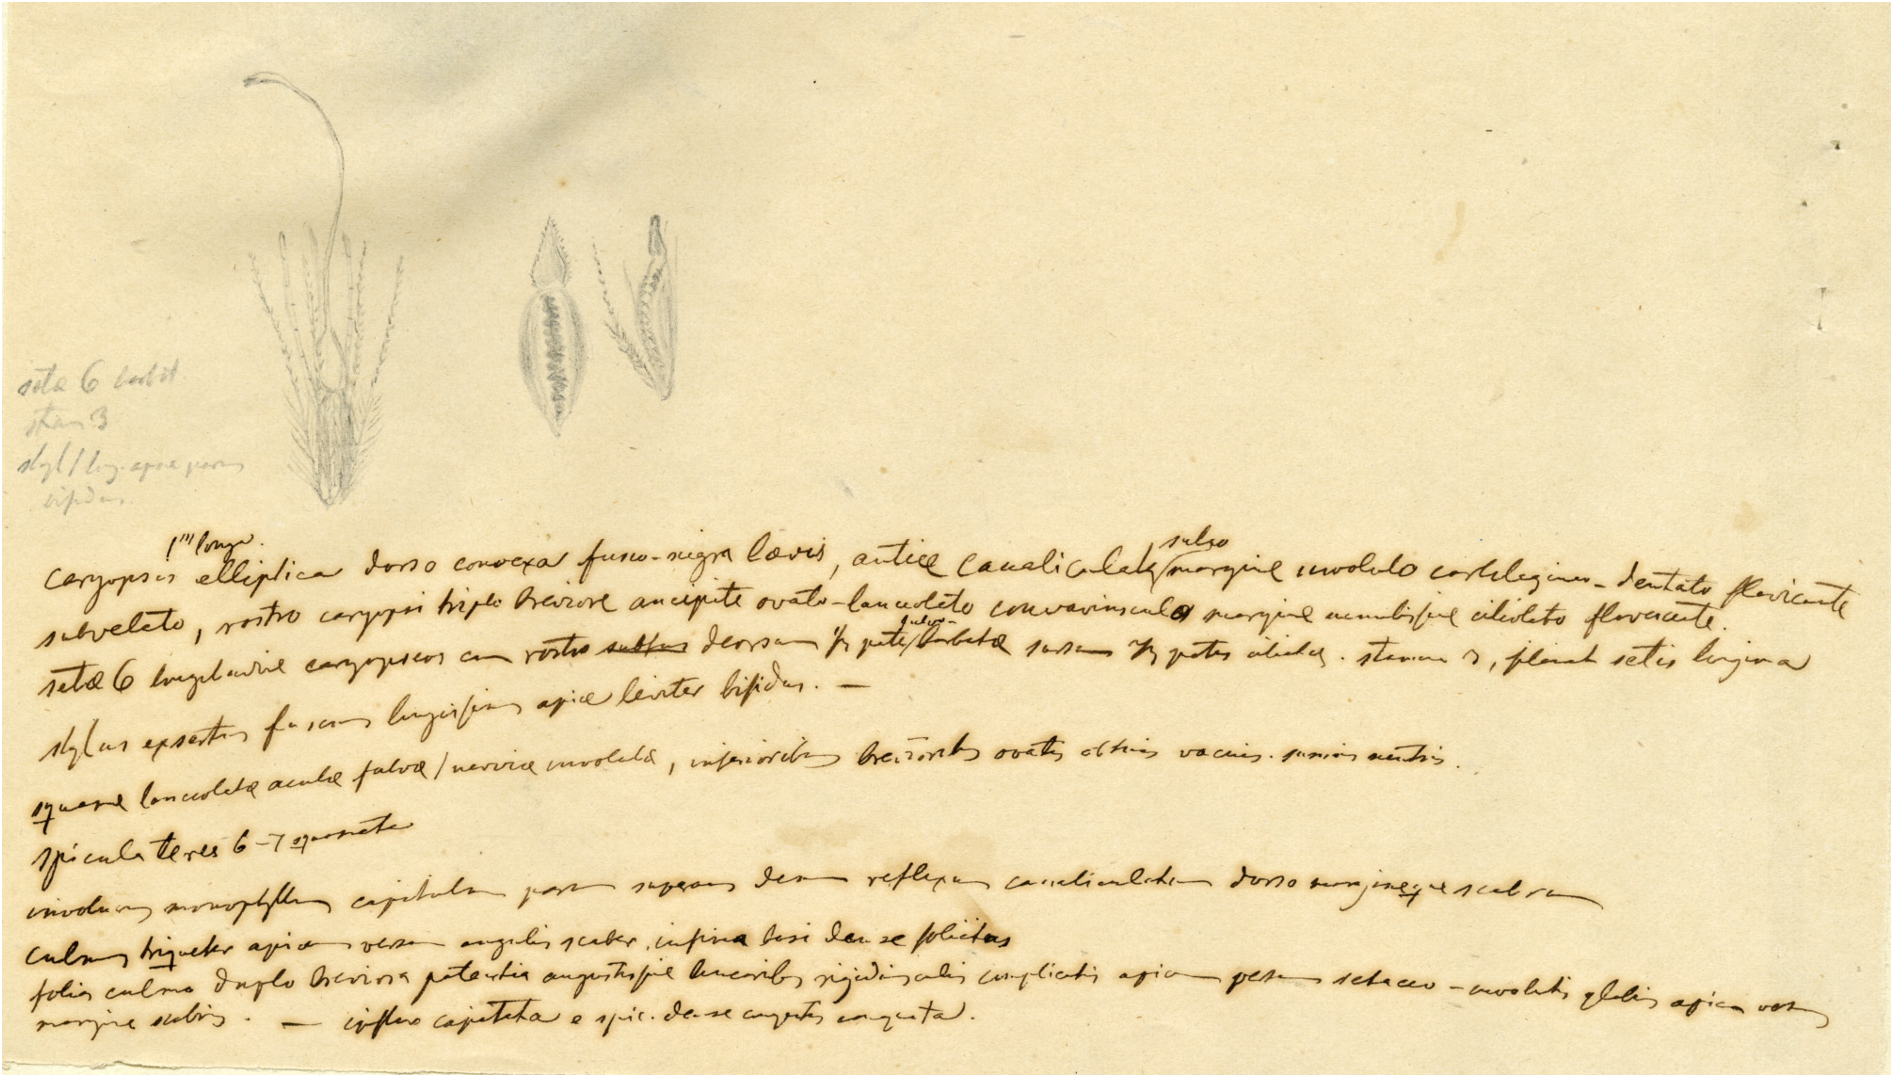 setæ 6 barbat
stam 3
styl / long. apice parum
bifidus.
1''' longa.
caryopsis elliptica dorso convexa fusco-nigra lævis, antice canaliculata / margine involuto cartilagineo-dentato flavicante
sulco
subvelato, rostro caryopsi triplo breviore ancipite ovato-lanceolato concaviusculo margine ciliolato flavescente.
setæ 6 longitudine caryopseos cum rostro deorsum barbatæ sursum stamina 3, setis longiora
stylus exsertus fuscus longissimus apice leviter bifidus. —
squamæ lanceolatæ acutæ fulvæ / nervia involutæ, inferioribus brevioribus ovatis vacuis.
spicula teres 6-7 squamata
involucrum monophyllum capitulum parum superans dein reflexum canaliculatum dorso margineque scabrum
culmus triqueter apicem versus angulis scaber. infima basi dense foliatus
folia culmo duplo breviora patentia linearibus rigidiusculis complicatis apicem versus setaceo-involutis glabris apicem versus
margine scabris. — capitata e spic. dense congestis